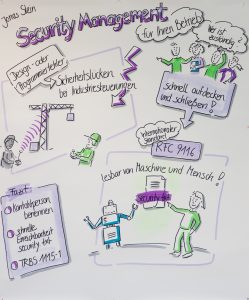 Jonas Stein
Security Management
für Ihren Betrieb
Wer ist
zuständig
Design- oder
Programmierfehler
Sicherheitslücken
bei Industriesteuerungen
schnell aufdecken
und schließen!
internationaler
Standard
RFC 9116
lesbar von Maschine und Mensch!
security.txt
Fazit
Kontaktperson
benennen
schnelle
Erreichbarkeit
security.txt
TRBS 1115-1